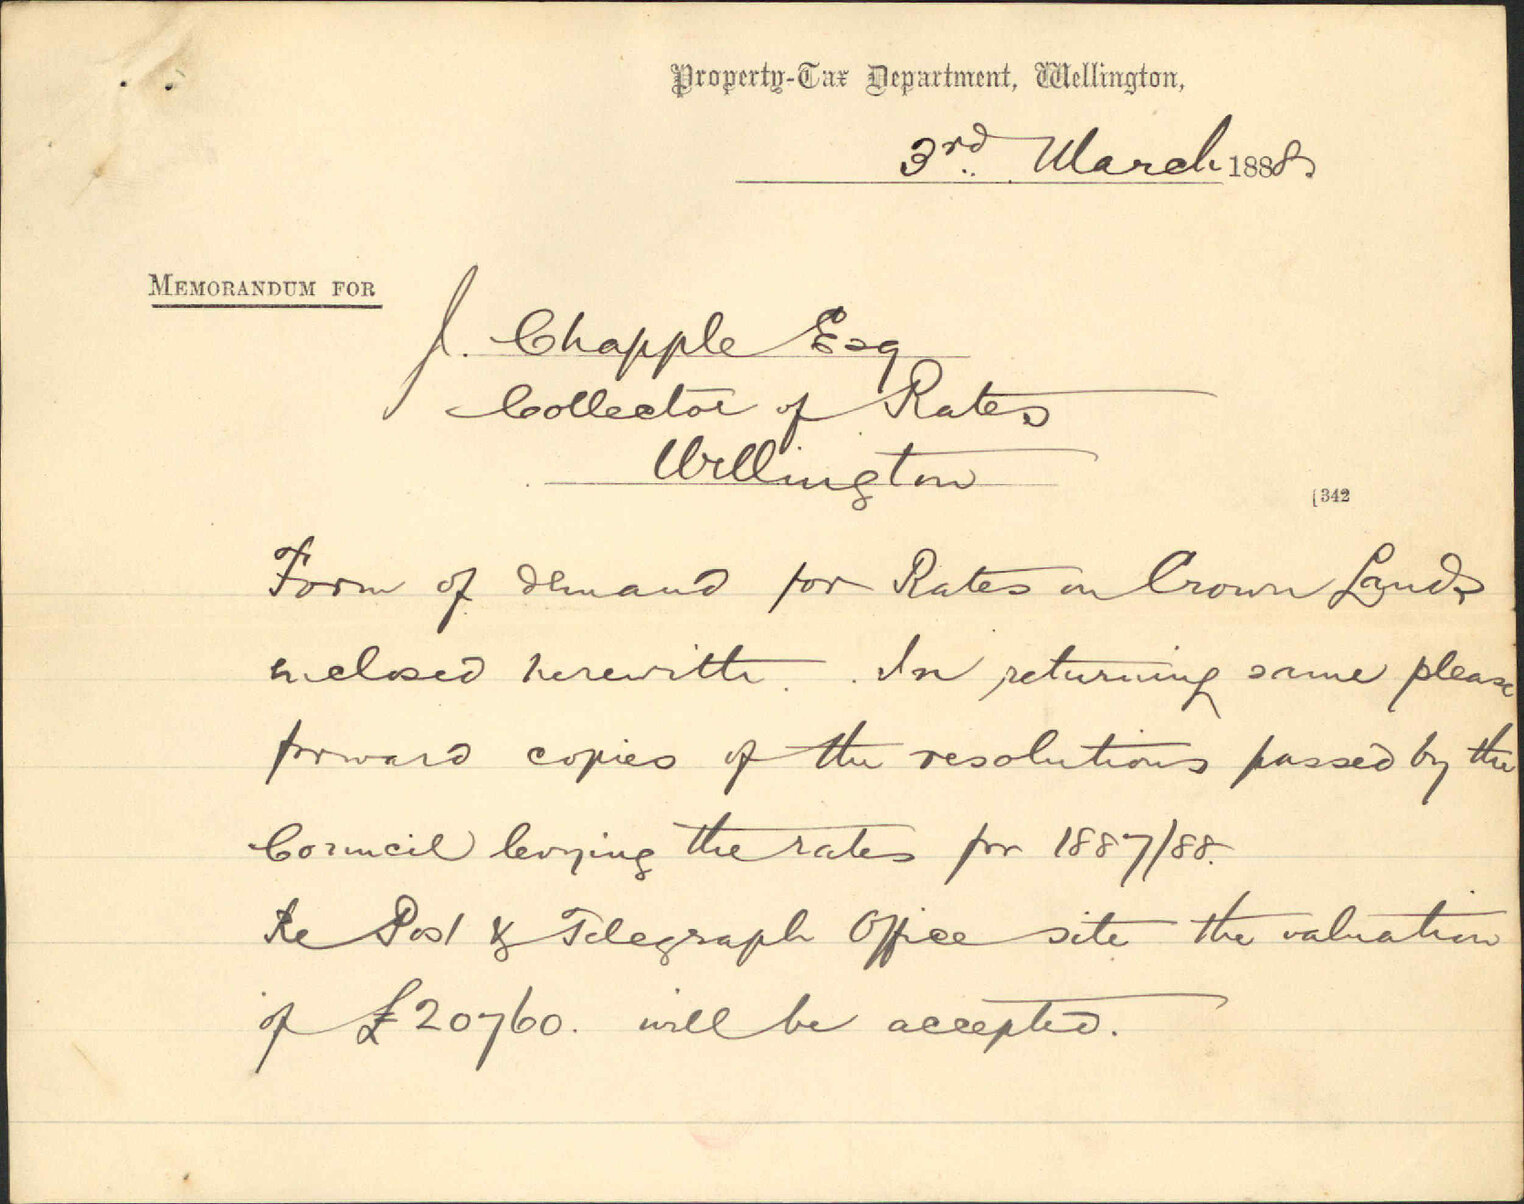 Property-Tax Department, Wellington,
3rd. March 1888
MEMORANDUM FOR
J. Chapple Esq
Collector of Rates
Wellington
[342
Form of demand for Rates on Crown Lands
enclosed herewith. In returning same please
forward copies of the resolutions passed by the
Council levying the rates for 1887/88.
Re Post & Telegraph Office site the valuation
of £20760. will be accepted.